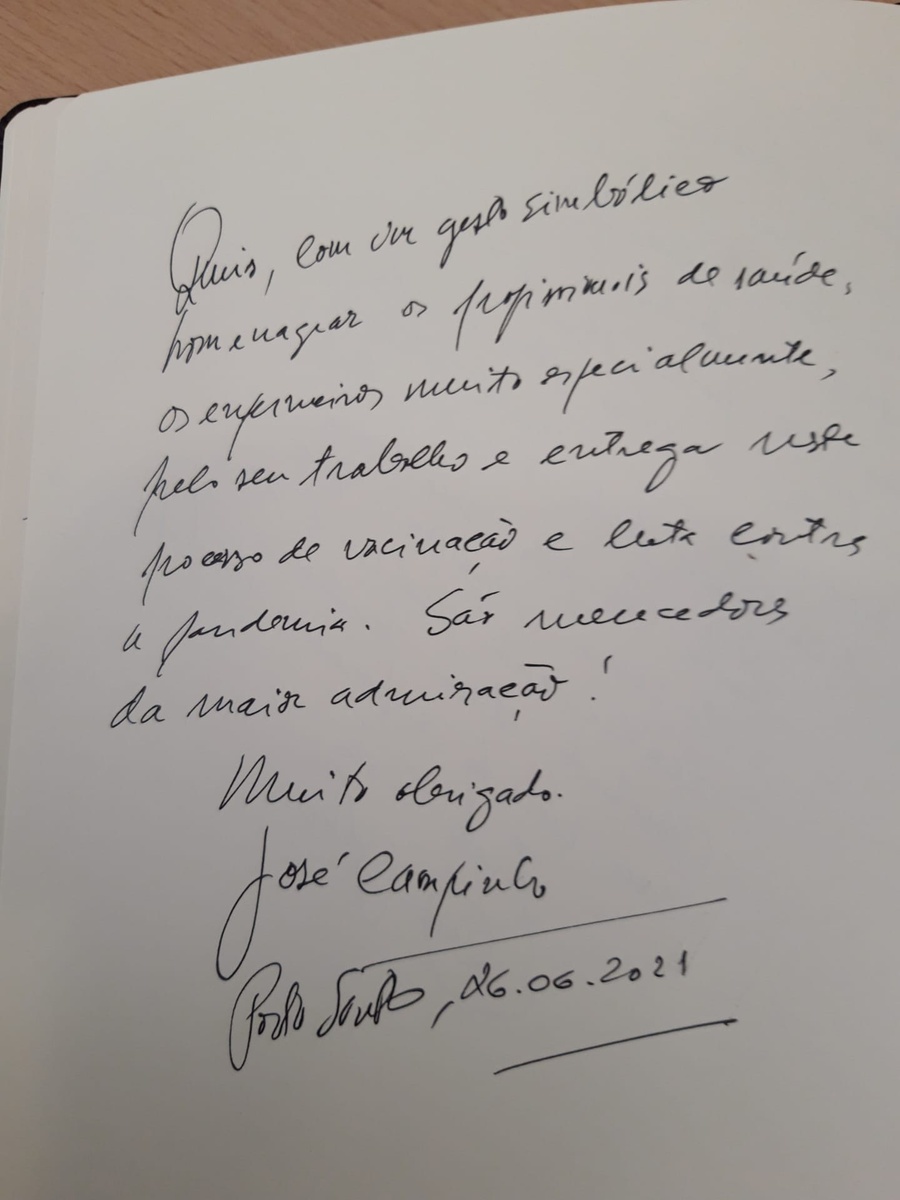 Quis, com um gesto simbólico
homenagear os profissionais de saúde,
os enfermeiros muito especialmente,
pelo seu trabalho e entrega neste
processo de vacinação e luta contra
a pandemia. São merecedores
da maior admiração!
Muito obrigado.
José Campinho
Porto Santo, 26.06.2021